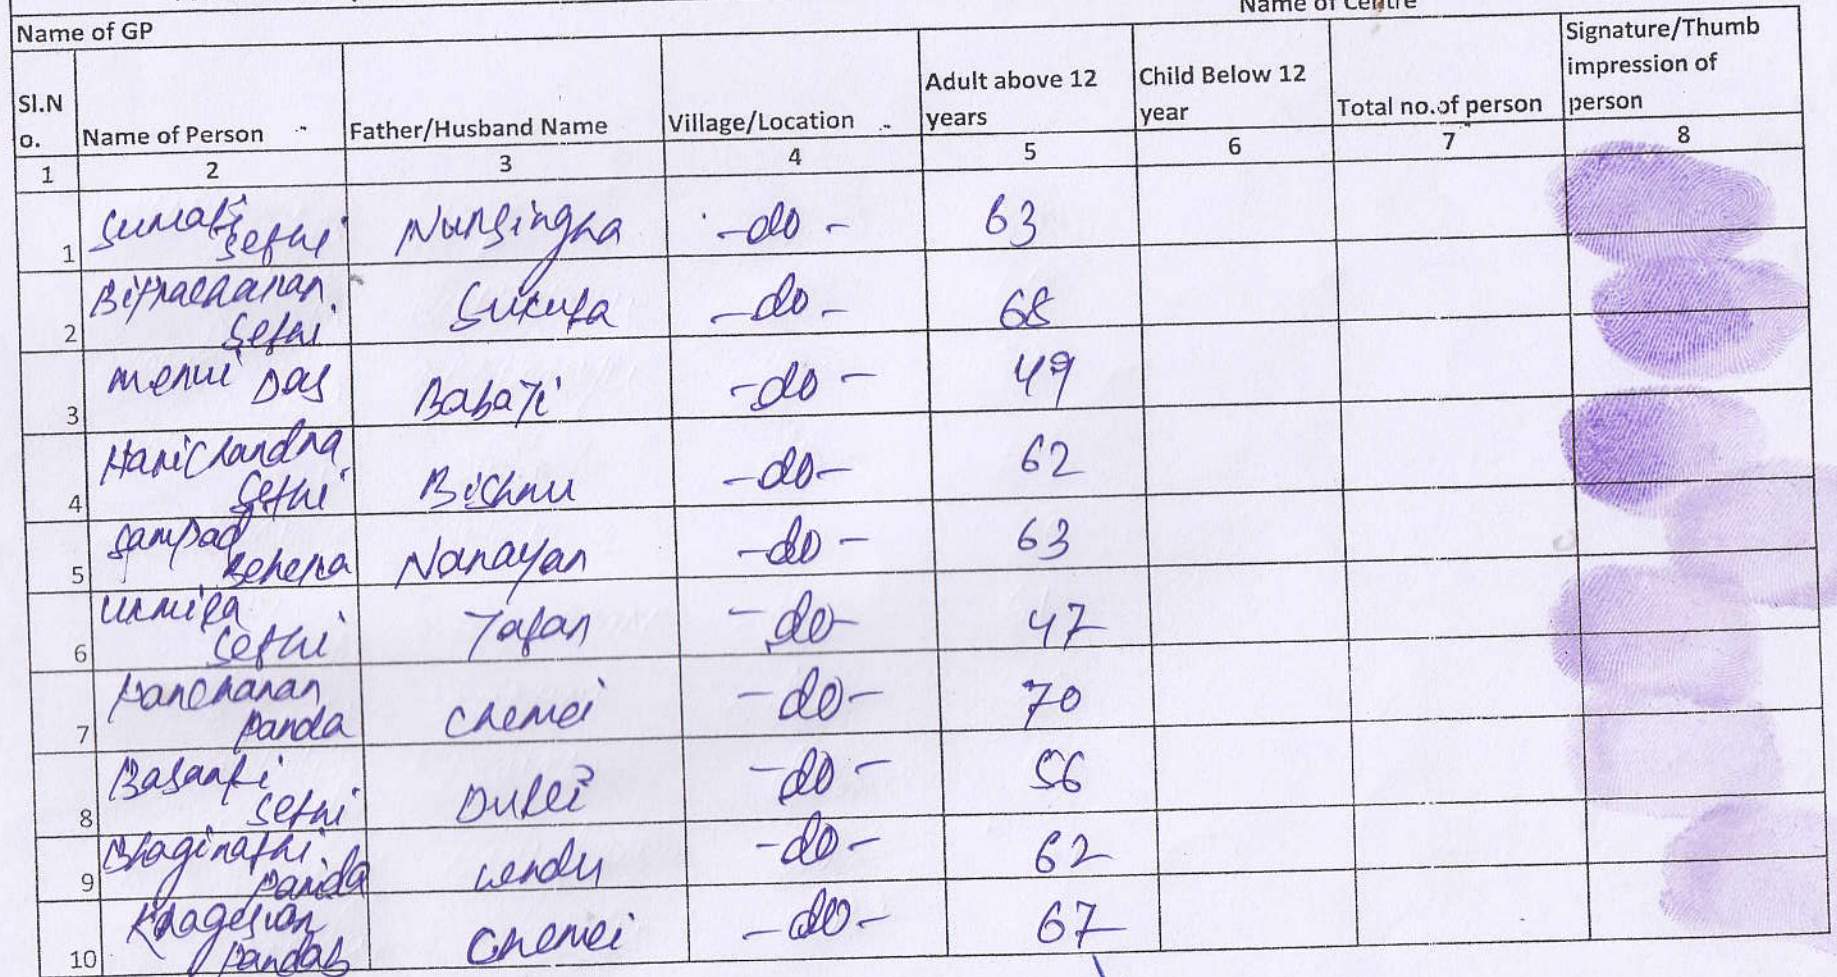 Name of Centre
Name of GP
Sl.N o. Name of Person Father/Husband Name Village/Location Adult above 12 years Child Below 12 year Total no.of person Signature/Thumb impression of person
1 2 3 4 5 6 7 8
1 Sumati Sethi Nursingha -do- 63
2 Sethi -do- 68
3 Menui Das Babaji -do- 49
4 Harichandra Sethi Bishnu -do- 62
5 Sampad Behera Narayan -do- 63
6 Urmila Sethi Tapan -do- 47
7 Panchanan Panda Chemei -do- 70
8 Basanti Sethi -do- 56
9 Bhagirathi Panda -do- 62
10 Chemei -do- 67